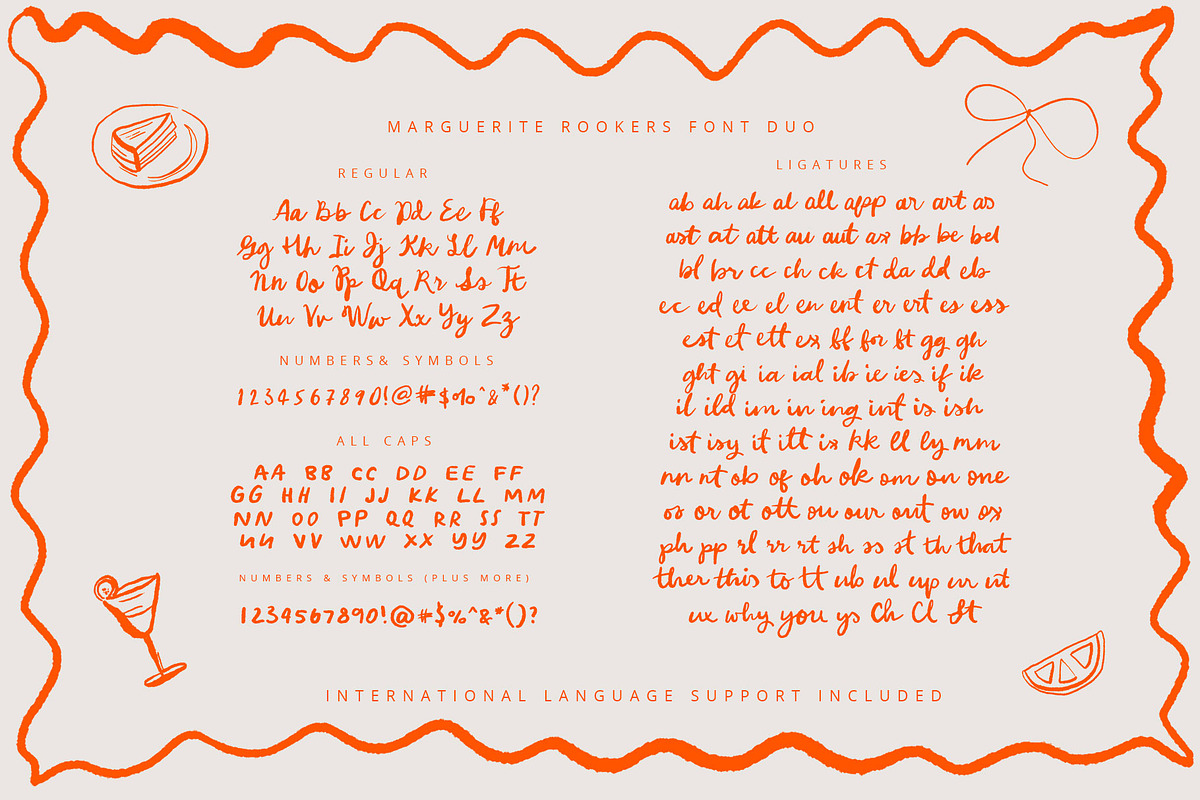 MARGUERITE ROOKERS FONT DUO
REGULAR
Aa Bb Cc Dd Ee Ff
Gg Hh Ii Jj Kk Ll Mm
Nn Oo Pp Qq Rr Ss Tt
Uu Vv Ww Xx Yy Zz
NUMBERS& SYMBOLS
1234567890!@#$%^&*()?
ALL CAPS
AA BB CC DD EE FF
GG HH II JJ KK LL MM
NN OO PP QQ RR SS TT
UU VV WW XX YY ZZ
NUMBERS & SYMBOLS (PLUS MORE)
1234567890!@#$%^&*()?
LIGATURES
ab ah ak al all app ar art as
ast at att au aut ax bb be bel
bl br cc ch ck ct da dd eb
ec ed ee el en ent er ert es ess
est et ett ex ff for ft gg gh
ght gi ia ial ib ie ies if ik
il ild im in ing int is ish
ist isy it itt ix kk ll ly mm
nn nt ob of oh ok om on one
os or ot ott ou our out ow ox
ph pp rl rr rt sh ss st th that
ther this to tt ub ul up ur ut
ux why you ys Ch Cl St
INTERNATIONAL LANGUAGE SUPPORT INCLUDED